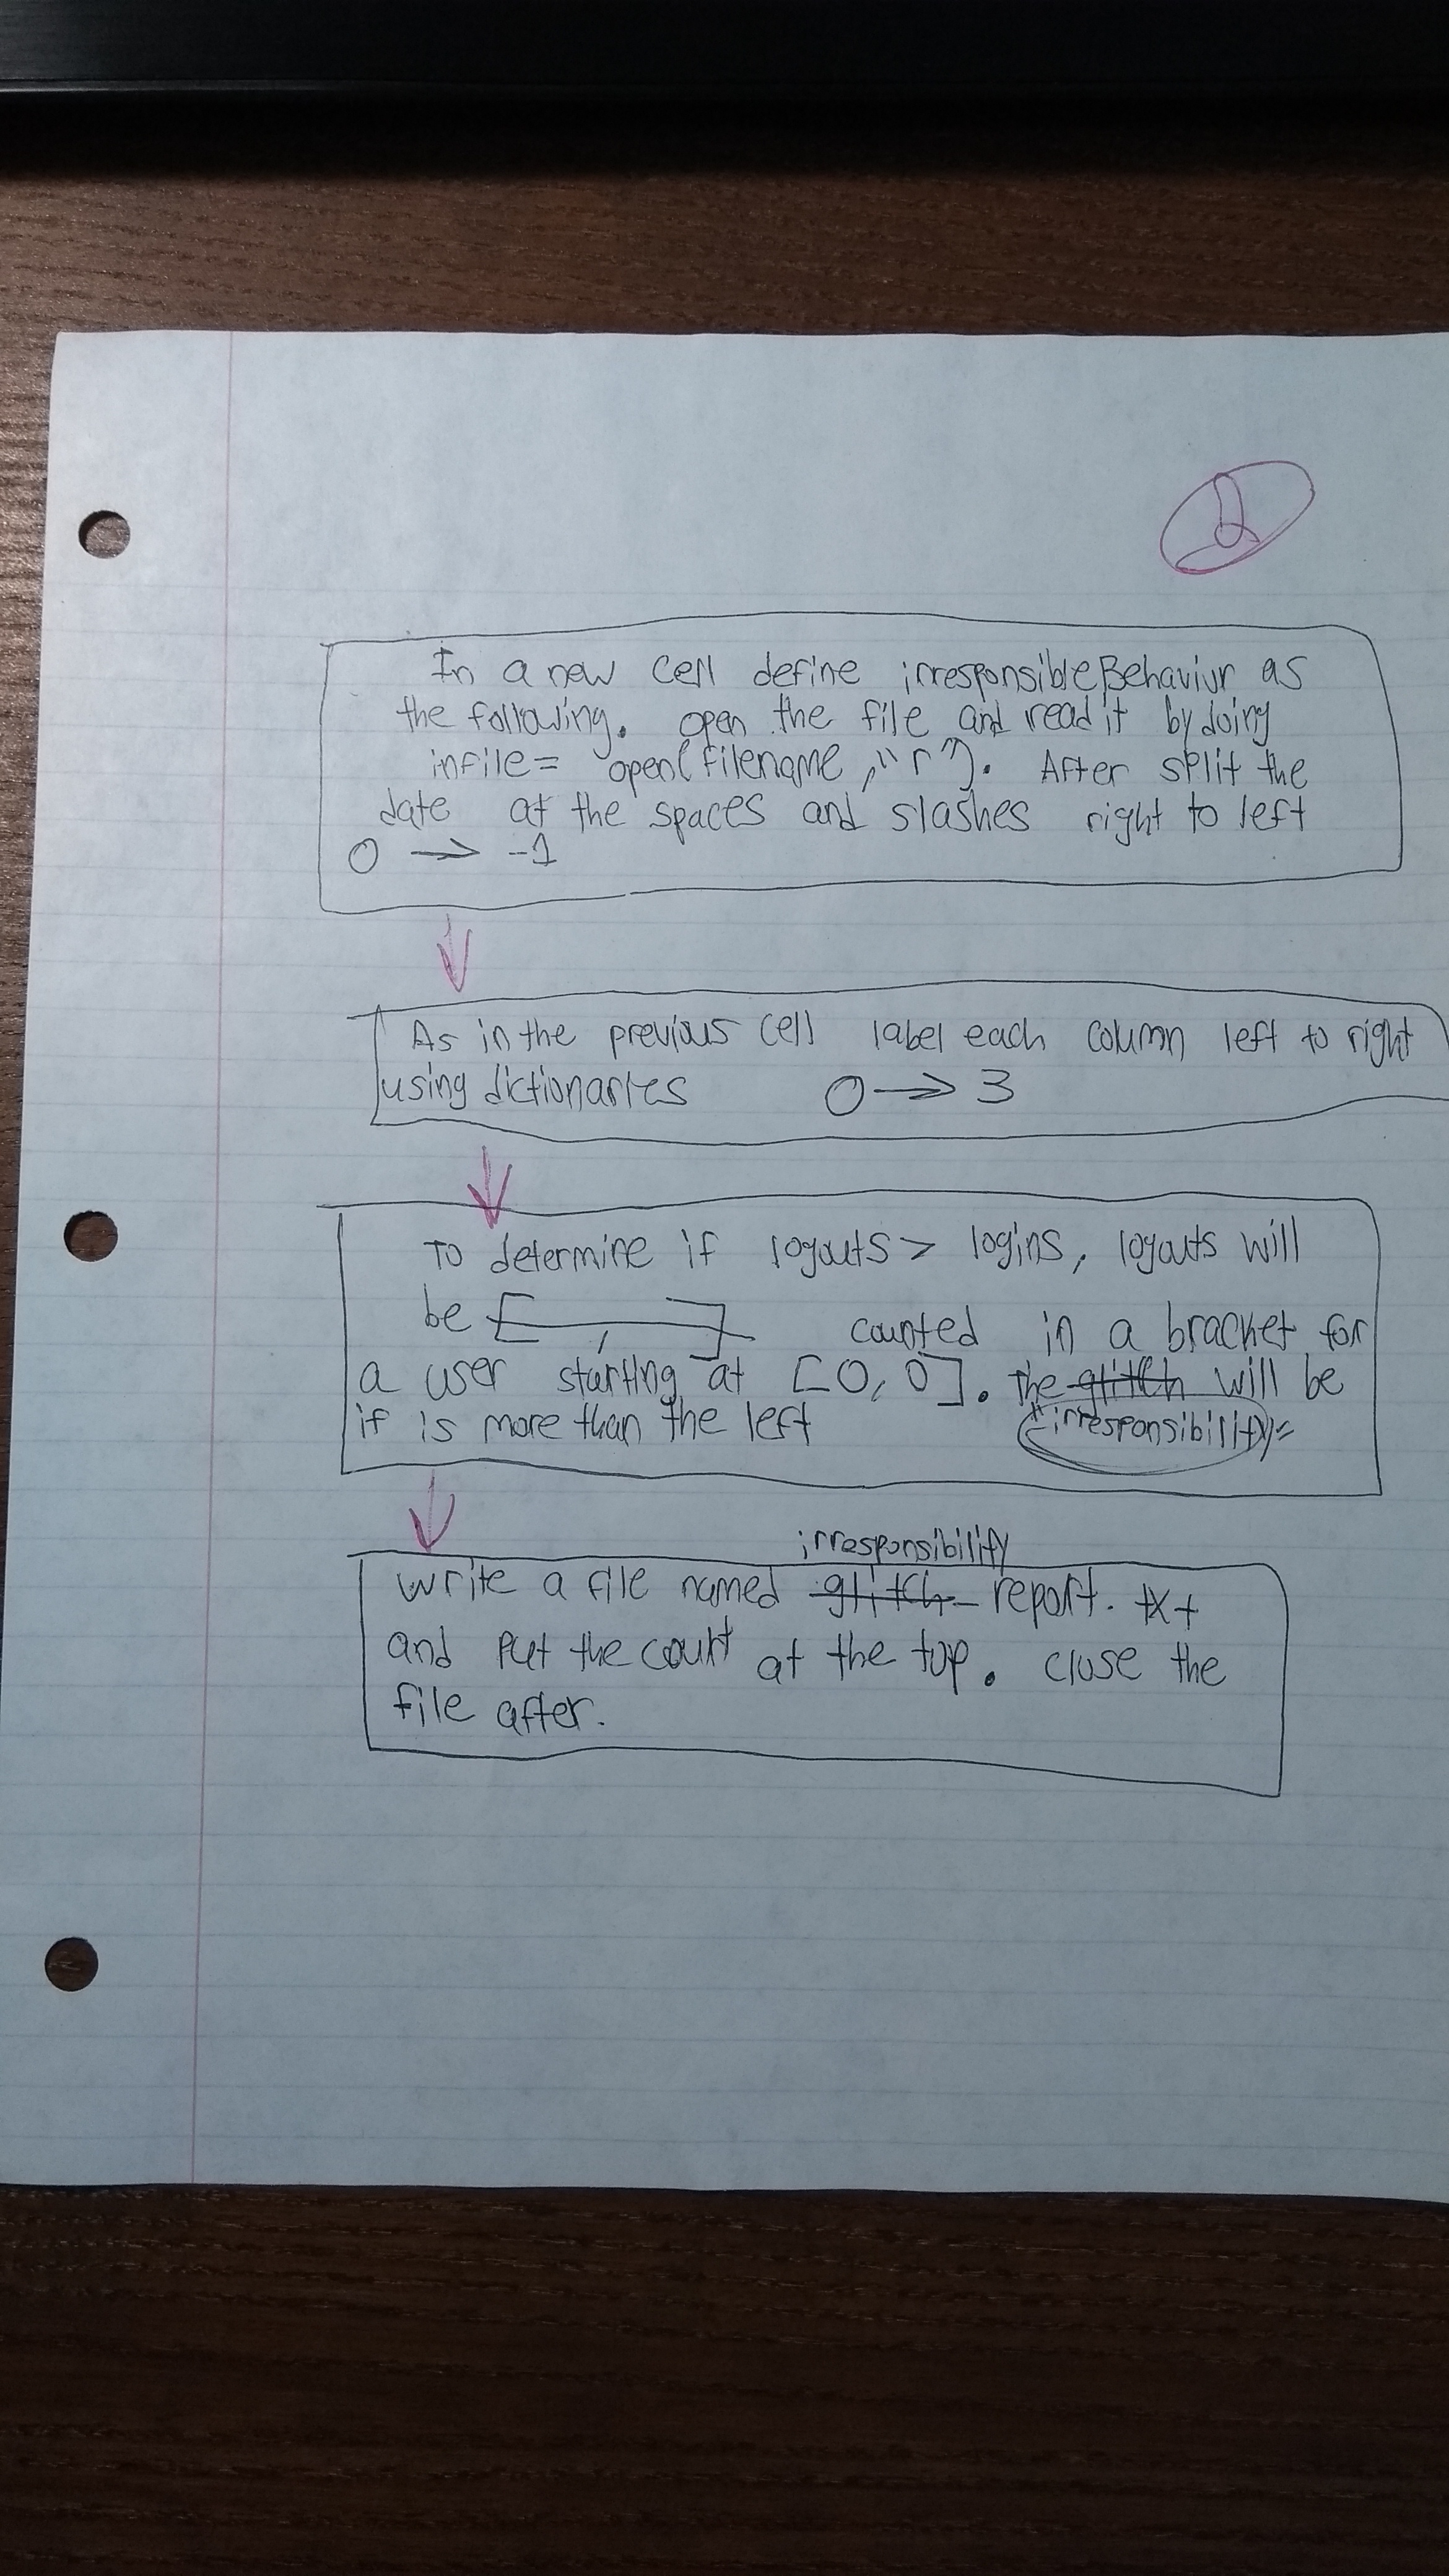 2
In a new cell define irresponsibleBehaviur as
the following. open the file and read it by doing
infile= open(filename,"r"). After split the
date at the spaces and slashes right to left
0 → -1
As in the previous cell label each column left to right
using dictionaries 0 → 3
To determine if logouts > logins, logouts will
be [ , ] counted in a bracket for
a user starting at [0,0]. The glitch will be
if is more than the left irresponsibility
irresponsibility
Write a file named glitch report.txt
and put the count at the top. close the
file after.